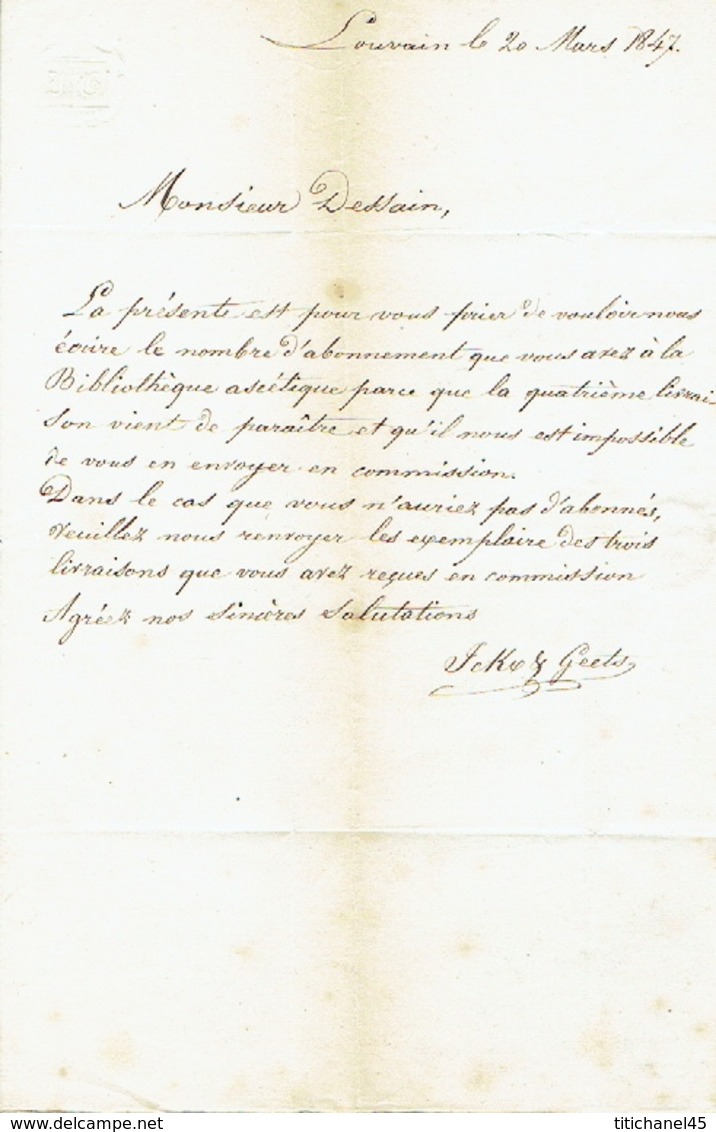 Louvain le 20 Mars 1847.
Monsieur Dessain,
La présente est pour vous prier de vouloir nous
écrire le nombre d'abonnement que vous avez à la
Bibliothèque ascétique parce que la quatrième livrai
son vient de paraître et qu'il nous est impossible
de vous en envoyer en commission.
Dans le cas que vous n'auriez pas d'abonnés,
veuillez nous renvoyer les exemplaire des trois
livraisons que vous avez reçues en commission
Agréez nos sincères salutations
& Geets
titichanel45